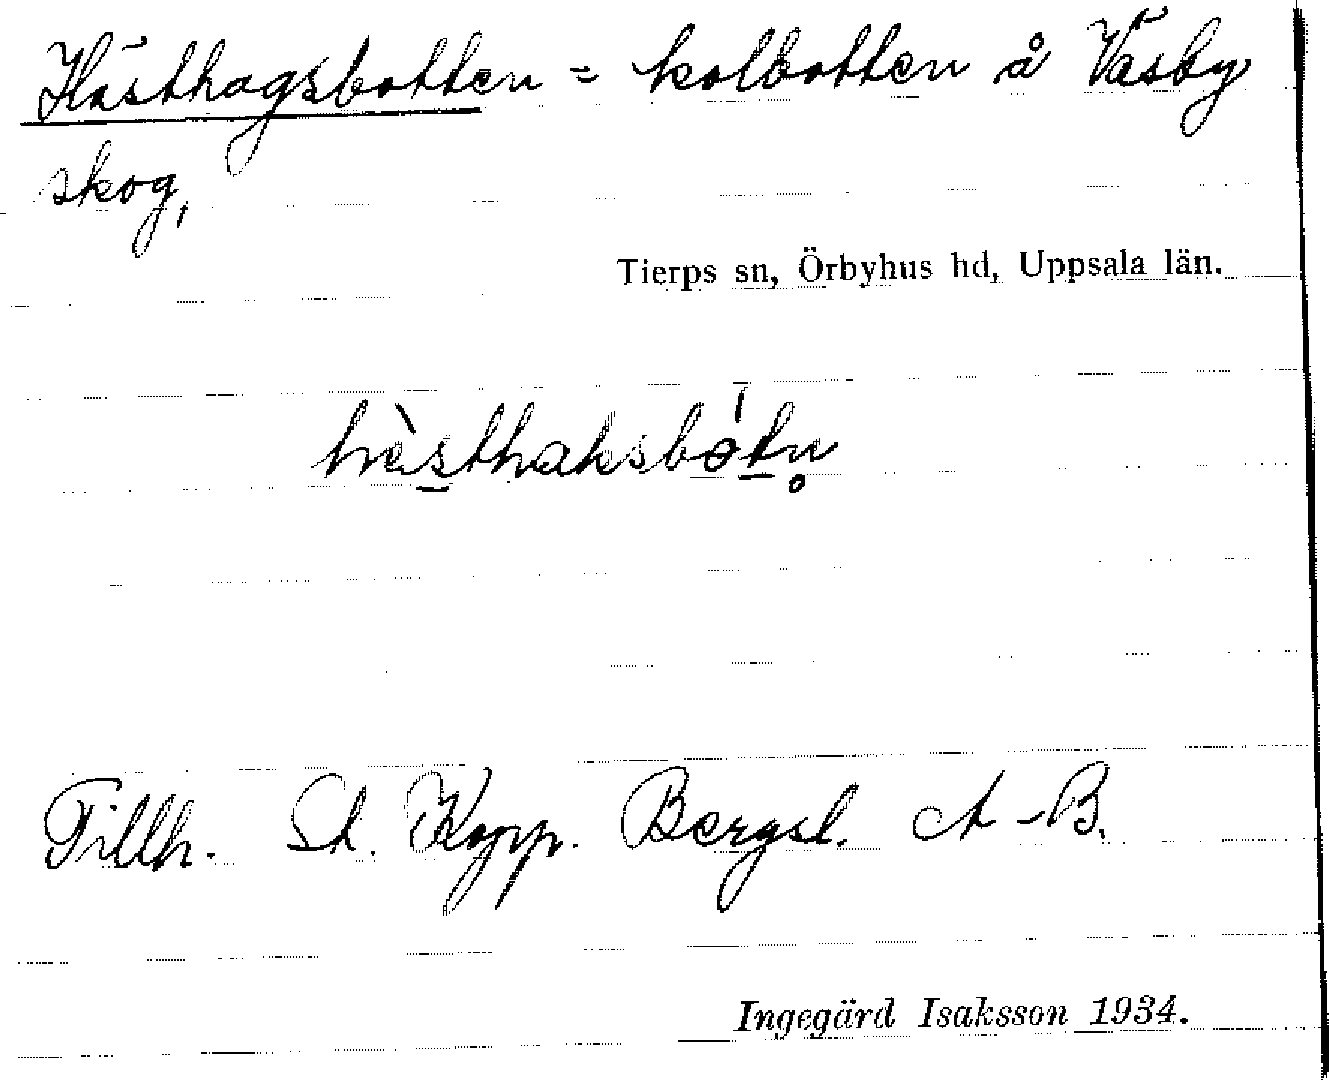 Hästhagsbotten = kolbotten å Väsby
skog,
Tierps sn, Örbyhus hd, Uppsala län.
hὲsthaksbótn̥
Tillh. St. Kopp. Bergsl. A-B.
Ingegärd Isaksson 1934.